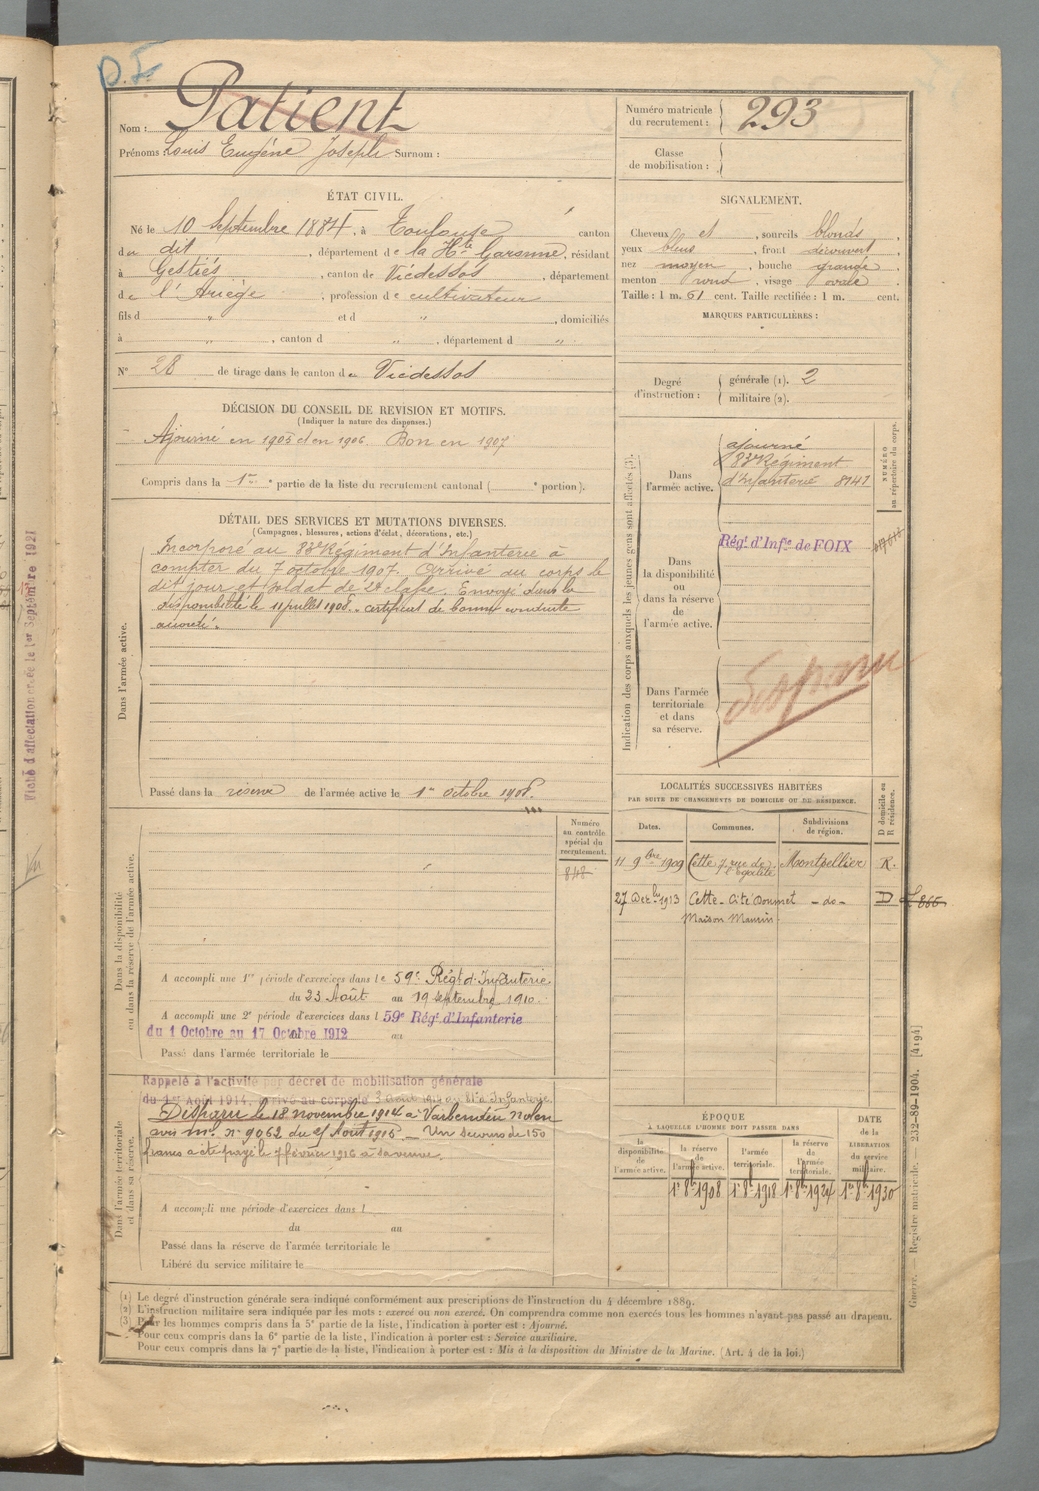 D.F.
Patient
Nom :
Prénoms Louis Eugène Joseph Surnom :
Numéro matricule du recrutement : 293
Classe de mobilisation :
ÉTAT CIVIL.
Né le 10 Septembre 1884, à Toulouse canton
du dit, département de la Hte Garonne, résidant
à Gestiés, canton de Vicdessos, département
de l'Ariège, profession de cultivateur
fils d " et d ", domiciliés
à ", canton d ", département d "
No 28 de tirage dans le canton de Vicdessos
SIGNALEMENT.
Cheveux et, sourcils blonds,
yeux bleus, front découvert,
nez moyen, bouche grande,
menton rond, visage ovale.
Taille : 1 m. 61 cent. Taille rectifiée : 1 m. cent.
MARQUES PARTICULIÈRES :
Degré d'instruction : générale (1). 2
militaire (2).
DÉCISION DU CONSEIL DE REVISION ET MOTIFS.
(Indiquer la nature des dispenses.)
Ajourné en 1905 et en 1906. Bon en 1907
Compris dans la 1re partie de la liste du recrutement cantonal ( e portion).
DÉTAIL DES SERVICES ET MUTATIONS DIVERSES.
(Campagnes, blessures, actions d'éclat, décorations, etc.)
Dans l'armée active.
Incorporé au 83e Régiment d'Infanterie à
compter du 7 octobre 1907. Arrivé au corps le
dit jour et soldat de 2e classe. Envoyé dans la
disponibilité le 11 juillet 1908. certificat de bonne conduite
accordé.
Passé dans la réserve de l'armée active le 1er Octobre 1908.
Indication des corps auxquels les jeunes gens sont affectés (3).
NUMÉRO au répertoire du corps.
Dans l'armée active.
ajourné
83e Régiment
d'Infanterie 8141
Dans la disponibilité ou dans la réserve de l'armée active.
Régt d'Infie de FOIX
Dans l'armée territoriale et dans sa réserve.
Disparu
LOCALITÉS SUCCESSIVES HABITÉES
PAR SUITE DE CHANGEMENTS DE DOMICILE OU DE RÉSIDENCE.
Dates. Communes. Subdivisions de région. D domicile ou R résidence.
11 9bre 1909 Cette 7 rue de l'Egalité Montpellier R.
27 1913 Cette - Cité Doumet - do - D
Maison Maurin
Dans la disponibilité ou dans la réserve de l'armée active.
Numéro au contrôle spécial du recrutement.
848
A accompli une 1re période d'exercices dans le 59e Régt d'Infanterie
du 23 Août au 19 septembre 1910.
A accompli une 2e période d'exercices dans l 59e Rég. d'Infanterie
du 1 Octobre au 17 Octobre 1912 au
Passé dans l'armée territoriale le
Dans l'armée territoriale et dans sa réserve.
Rappelé à l'activité par décret de mobilisation générale
du 1er Août 1914. Arrivé au corps le 3 août 1914 au 81e Infanterie.
Disparu le 18 novembre 1914 à
avis ml. no 9062 du Août 1915 - Un secours de 150
francs a été payé le 7 février 1916 à sa veuve.
A accompli une période d'exercices dans l
du au
Passé dans la réserve de l'armée territoriale le
Libéré du service militaire le
ÉPOQUE
À LAQUELLE L'HOMME DOIT PASSER DANS
la disponibilité de l'armée active. la réserve de l'armée active. l'armée territoriale. la réserve de l'armée territoriale. DATE de la LIBÉRATION du service militaire.
1er 8bre 1908 1er 8bre 1918 1er 8bre 1924 1er 8bre 1930
(1) Le degré d'instruction générale sera indiqué conformément aux prescriptions de l'instruction du 4 décembre 1889.
(2) L'instruction militaire sera indiquée par les mots : exercé ou non exercé. On comprendra comme non exercés tous les hommes n'ayant pas passé au drapeau.
(3) Pour les hommes compris dans la 5e partie de la liste, l'indication à porter est : Ajourné.
Pour ceux compris dans la 6e partie de la liste, l'indication à porter est : Service auxiliaire.
Pour ceux compris dans la 7e partie de la liste, l'indication à porter est : Mis à la disposition du Ministre de la Marine. (Art. 4 de la loi.)
Guerre. — Registre matricule. — 232-89-1904. [4194]
d'affectation le 1er Septembre 1921
Vu